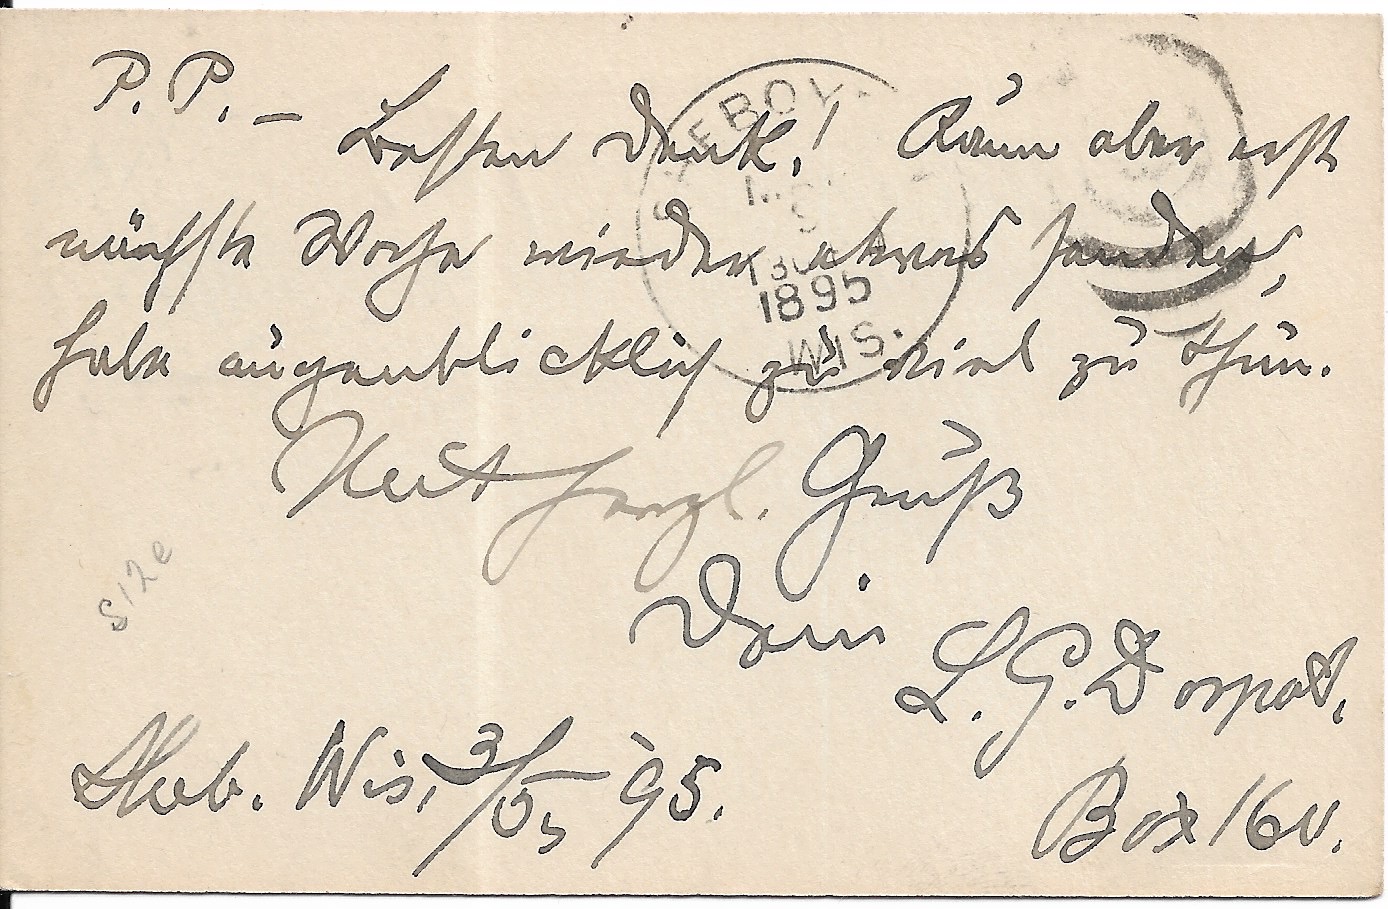 P. P. – Besten Dank! Kann aber erst
nächste Woche wieder etwas senden,
habe augenblicklich zu viel zu thun.
Mit herzl. Gruß
Dein
L. G. Dorpat,
Sheb. Wis., 3/5, '95.
Box 160.
SHEBOY
1895
WIS.
S12e